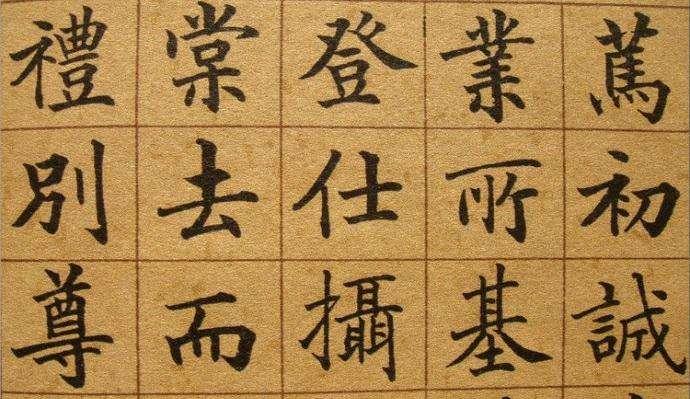 篤初誠
業所基
登仕攝
棠去而
禮別尊